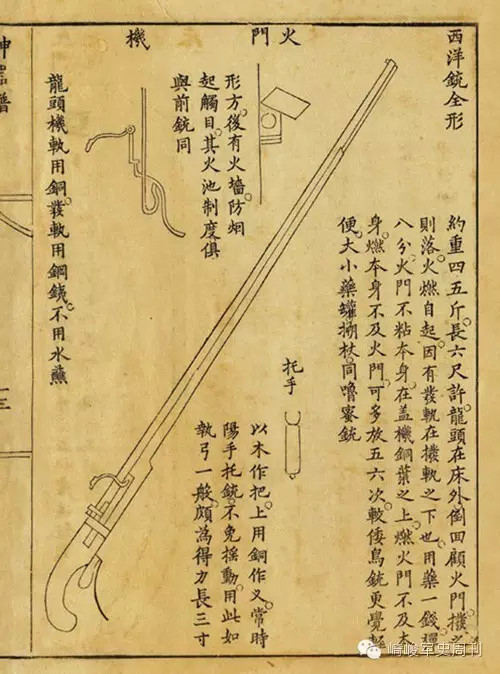 西洋銃全形
約重四五斤長六尺許龍頭在床外倒回顧火門撥之
則落火燃自起因有發軌在撥軌之下也用藥一錢彈
八分火門不粘本身在盖機銅葉之上燃火門不及本
身燃本身不及火門可多放五六次較倭鳥銃更覺輕
便大小藥罐搠杖同嚕蜜銃
托手
以木作把上用銅作叉常時
陽手托銃不免搖動用此如
執弓一般頗為得力長三寸
火門
形方後有火墻防烟
起觸目其火池制度俱
與前銃同
機
龍頭機軌用銅發軌用鋼鐵不用水蘸
崎峻军史周刊